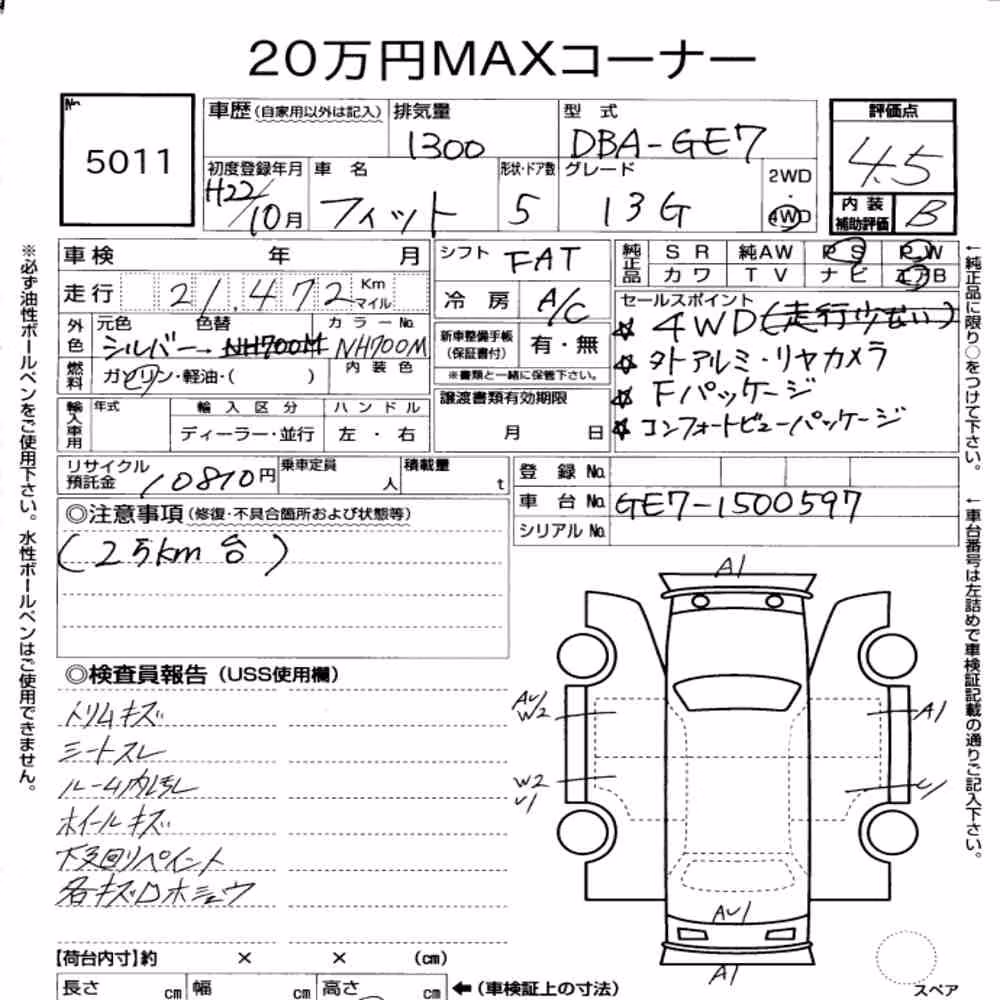 20万円MAXコーナー
No.
5011
車歴(自家用以外は記入)
排気量
1300
型式
DBA-GE7
評価点
4.5
内装補助評価
B
初度登録年月
H22/10月
車名
フィット
形状・ドア数
5
グレード
13G
2WD
4WD
車検 年 月
走行 21,472 Km マイル
外色
元色 色替 カラーNo.
シルバー→ NH700M NH700M
燃料
ガソリン・軽油・( )
内装色
輸入車用
年式
輸入区分
ハンドル
ディーラー・並行
左・右
シフト
FAT
冷房
A/C
新車整備手帳(保証書付)
有・無
※書類と一緒に保管下さい。
譲渡書類有効期限
月 日
純正品
SR 純AW PS PW
カワ TV ナビ エアB
セールスポイント
☆ 4WD(走行少ない)
☆ 外アルミ・リヤカメラ
☆ Fパッケージ
☆ コンフォートビューパッケージ
リサイクル預託金
10810円
乗車定員
人
積載量
t
登録No.
車台No. GE7-1500597
シリアルNo.
◎注意事項(修復・不具合箇所および状態等)
(25km台)
◎検査員報告(USS使用欄)
トリムキズ
シートスレ
ルーム内汚レ
ホイールキズ
下廻リペイント
各キズ
A1
AU1
W2
A1
W2
U1
U1
AU1
A1
【荷台内寸】約 × × (cm)
長さ cm 幅 cm 高さ cm
←(車検証上の寸法)
スペア
※必ず油性ボールペンをご使用下さい。水性ボールペンはご使用できません。
←純正品に限り○をつけて下さい。
←車台番号は左詰めで車検証記載の通りご記入下さい。